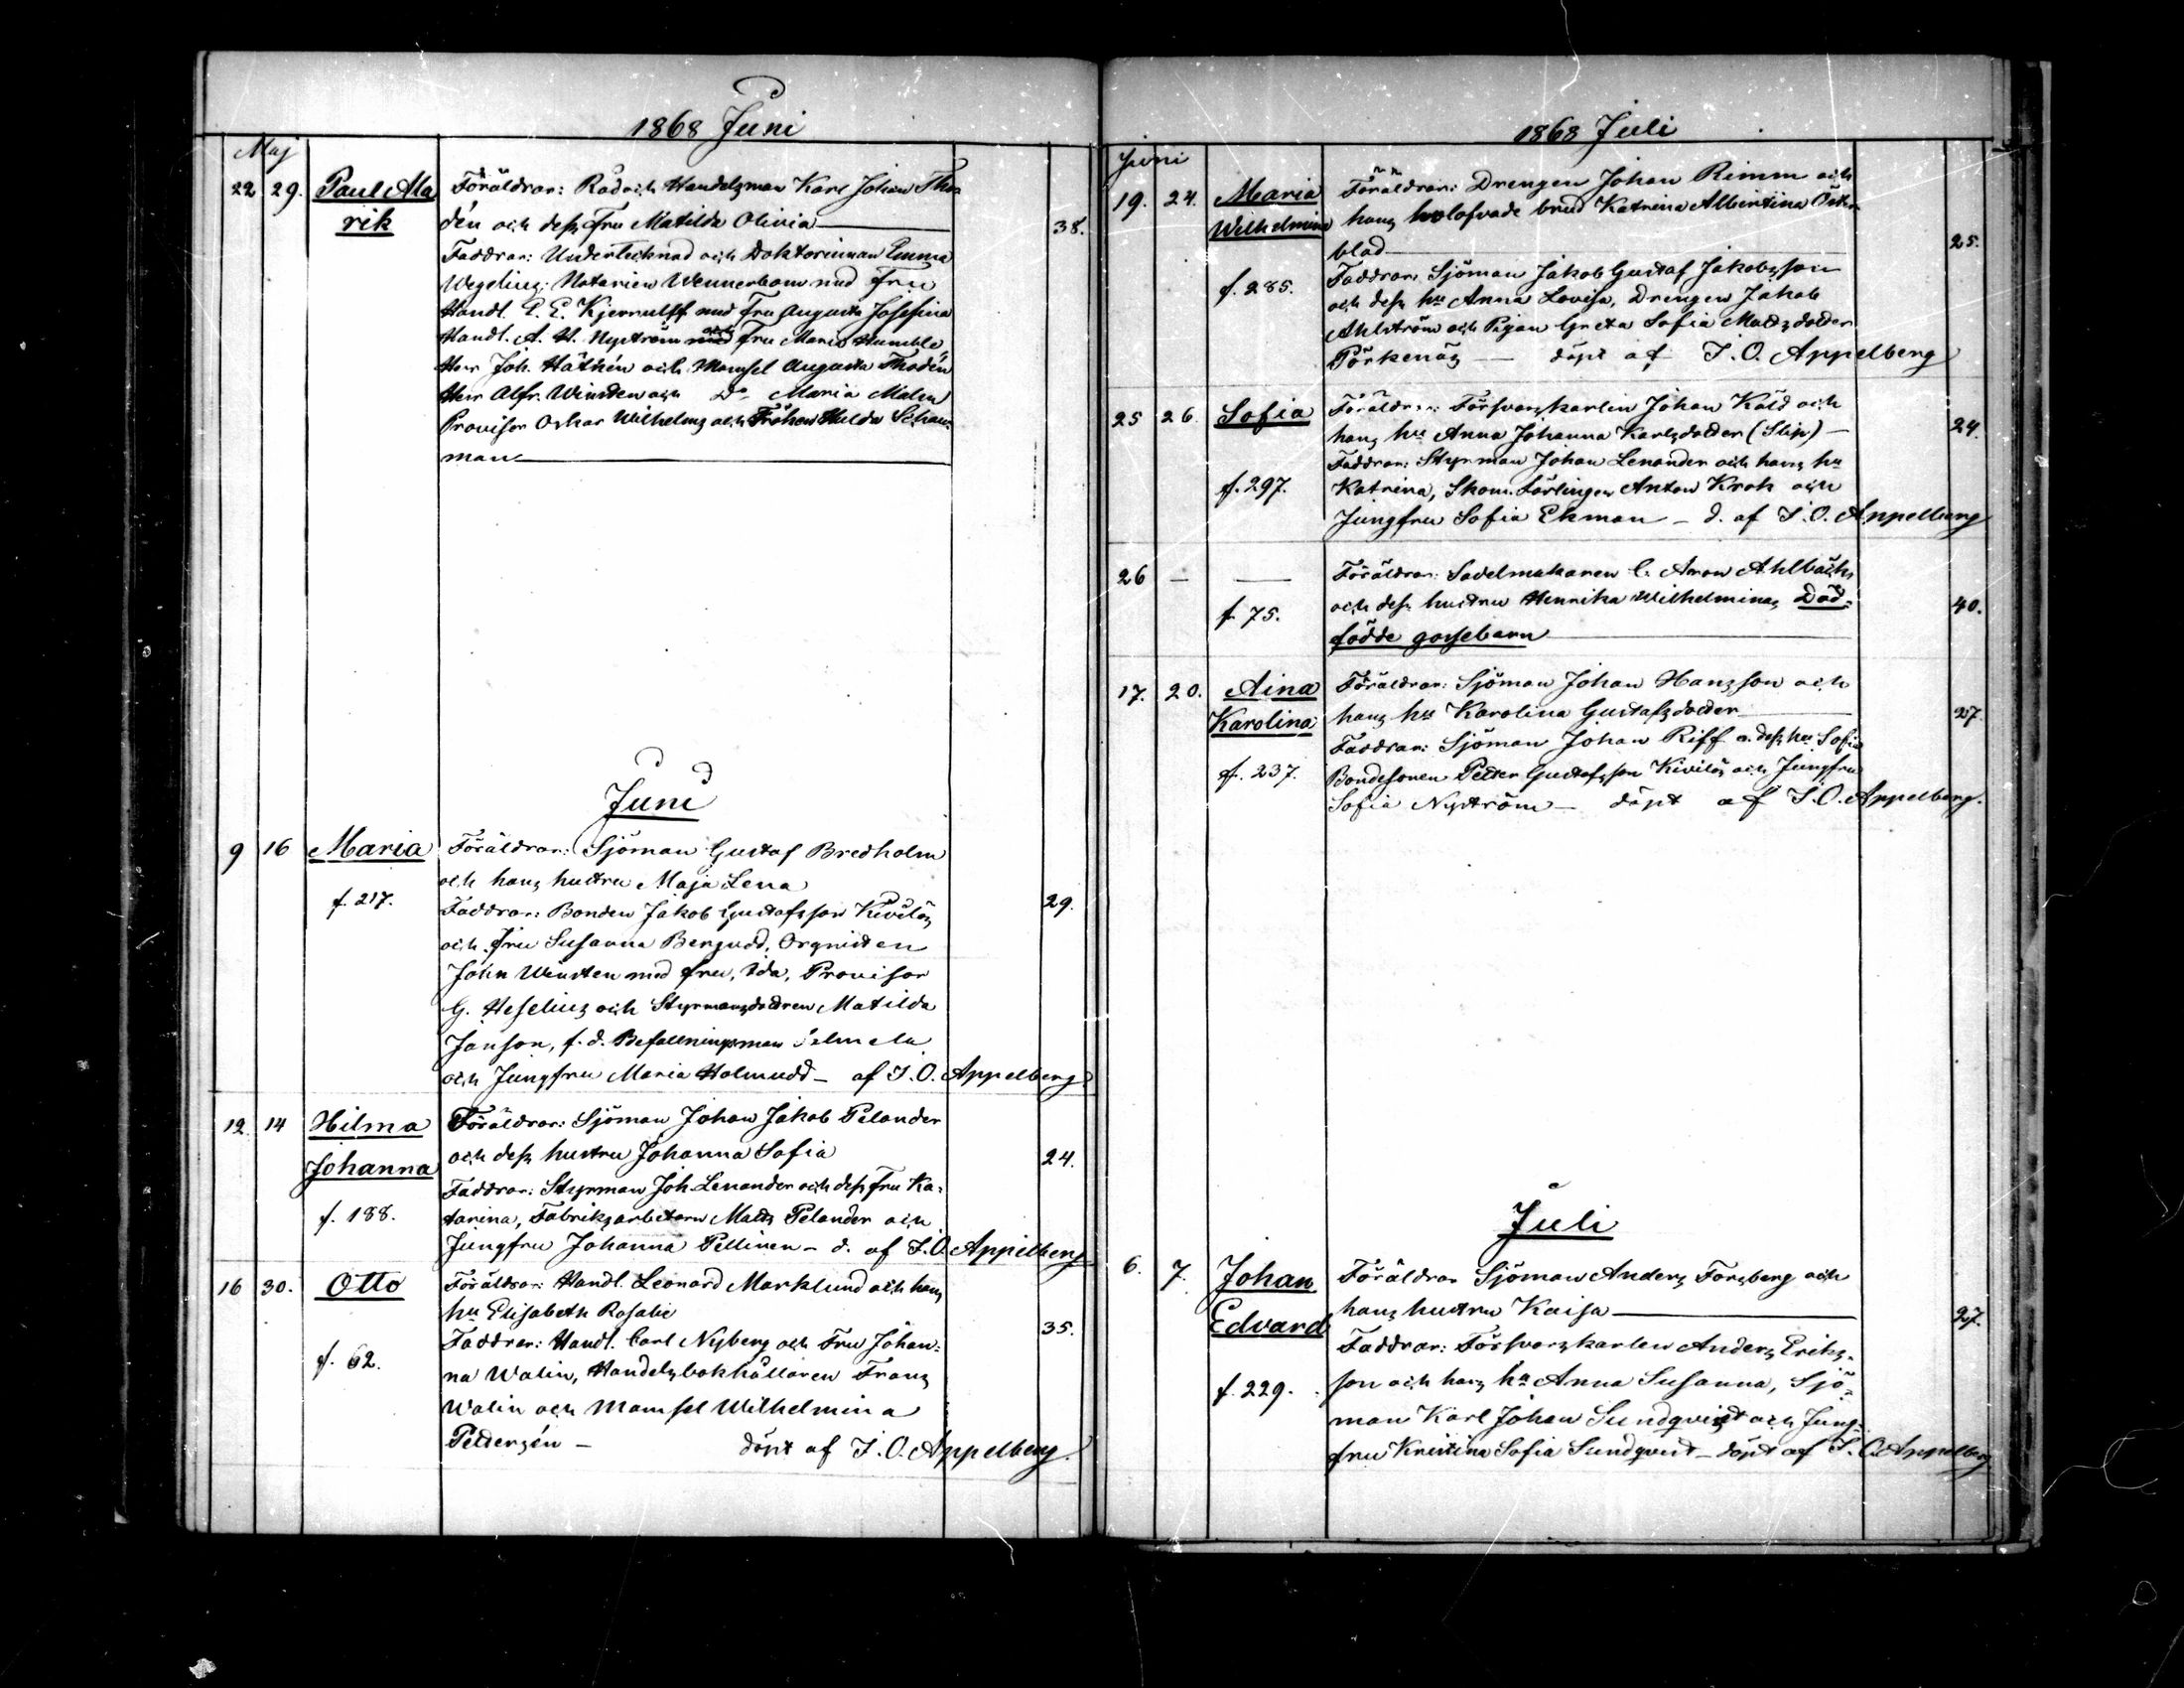 1868 Juni
Maj
22. 29. Paul Ala Föräldrar: Råd och Handelsman Karl Johan Tho
rik dén och dess Fru Matilda Olivia 38.
Faddrar: Undertecknad och Doktorinnan Emma
Wegelius; Notarien Wennerbom med Fru
Handl. P. E. Kjerrulff med Fru Augusta Josefina
Handl. A. H. Nyström och Fru Maria Humble
Herr Joh. Häthén och Mamsel Augusta Thodén
Herr Alfr. Winsten och Do Maria Malm
Provisor Oskar Wilhelms och Fröken Hulda Schau-
man
Juni
9 16 Maria Föräldrar: Sjöman Gustaf Bredholm
och hans hustru Maja Lena
f. 217. Faddrar: Bonden Jakob Gustafsson Kivilös 29.
och fru Susanna Bergudd, Orgnisten
John Winsten med fru, Ida, Provisor
G. Heselius och Styrmansdottren Matilda
Janson, f. d. Befallningsman
och Jungfru Maria Holmudd – af J. O. Appelberg
12. 14 Hilma Föräldrar: Sjöman Johan Jakob Pelander
Johanna och dess hustru Johanna Sofia 24.
Faddrar: Styrman Joh. Lenander och dess fru Ka-
f. 188. tarina, Fabriksarbetarn Matts Pelander och
Jungfru Johanna Pellinen – d. af J. O. Appelberg
16 30. Otto Föräldrar: Handl. Leonard Marklund och hans
hu Elisabeth Rosalie 35.
Faddrar: Handl. Carl Nyberg och Fru Johan-
f. 62. na Walin, Handelsbokhållaren Frans
Walin och Mamsel Wilhelmina
Petterzén – döpt af J. O. Appelberg.
1868 Juli
Juni
19. 24. Maria Föräldrar: Drengen Johan Rimm och
Wilhelmina hans trolofvade brud Katrina Albertina Öster-
blad 25.
f. 285. Faddrar: Sjöman Jakob Gustaf Jakobsson
och dess hu Anna Lovisa, Drengen Jakob
Ahlström och Pigan Greta Sofia Mattsdotter
Pörkenäs — döpt af J. O. Appelberg
25 26. Sofia Föräldrar: Försvarskarlen Johan Köld och
hans hu Anna Johanna Karlsdotter (Slip) – 24.
Faddrar: Styrman Johan Lenander och hans hu
f. 297. Katrina, Skom. Lärlingen Anton Krok och
Jungfru Sofia Ekman – d. af J. O. Appelberg
26 — — Föräldrar: Sadelmakaren C. Aron Ahlbäck
f. 75. och dess hustru Henrika Wilhelminas Död- 40.
födde gossebarn
17. 20. Aina Föräldrar: Sjöman Johan Hansson och
Karolina hans hu Karolina Gustafsdotter 27
Faddrar: Sjöman Johan Riff o. dess hu Sofia
f. 237. Bondesonen Petter Gustafsson Kivilös och Jungfru
Sofia Nyström – döpt af J. O. Appelberg.
Juli
6. 7. Johan Föräldrar Sjöman Anders Forsberg och
Edvard hans hustru Kaisa 27.
Faddrar: Försvarskarlen Anders Eriks-
f. 229. son och hans hu Anna Susanna, Sjö-
man Karl Johan Sundqvist och Jung-
fru Kristina Sofia Sundqvist – döpt af J. O. Appelberg